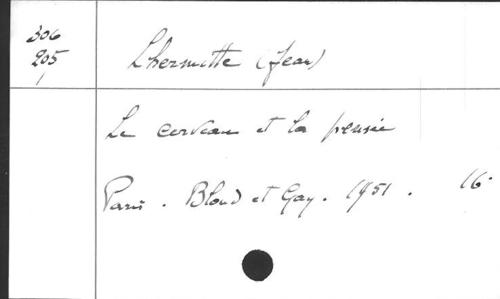 306
205
Lhermitte (Jean)
Le cerveau et la pensée
Paris. Bloud et Gay. 1951. 16°